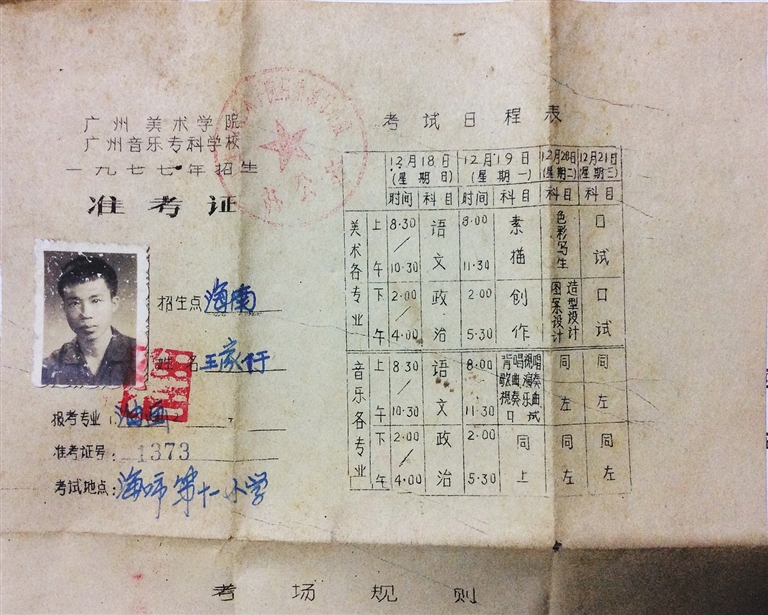 广州美术学院
广州音乐专科学校
一九七七年招生
准考证
招生点 海南
姓名 王家
报考专业: 油画
准考证号: 1373
考试地点: 海口市第十一小学
考试日程表
12月18日(星期日) 12月19日(星期一) 12月20日(星期二) 12月21日(星期三)
时间 科目 时间 科目 科目 科目
美术各专业 上午 8.30/10.30 语文 8.00 11.30 素描 色彩写生 口试
下午 2.00/4.00 政治 2.00 5.30 创作 造型设计 图案设计 口试
音乐各专业 上午 8.30/10.30 语文 8.00 11.30 背唱视唱 歌曲演奏 视奏乐曲 口试 同左 同左
下午 2.00/4.00 政治 2.00 5.30 同上 同左 同左
考场规则